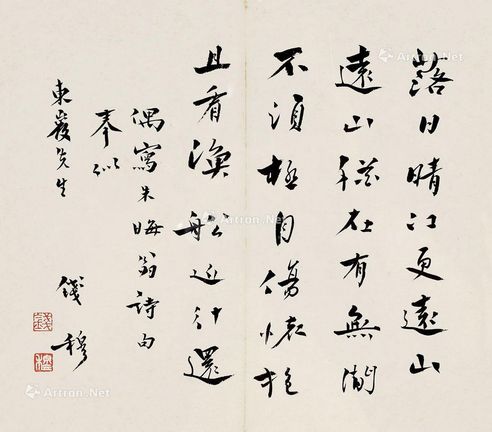 落日晴江更遠山
遠山猶在有無間
不須極目傷懷抱
且看漁船近往還
偶寫朱晦翁詩句
奉似
東巖先生
錢穆
Artron.Net
Artron.Net
Artron.Net